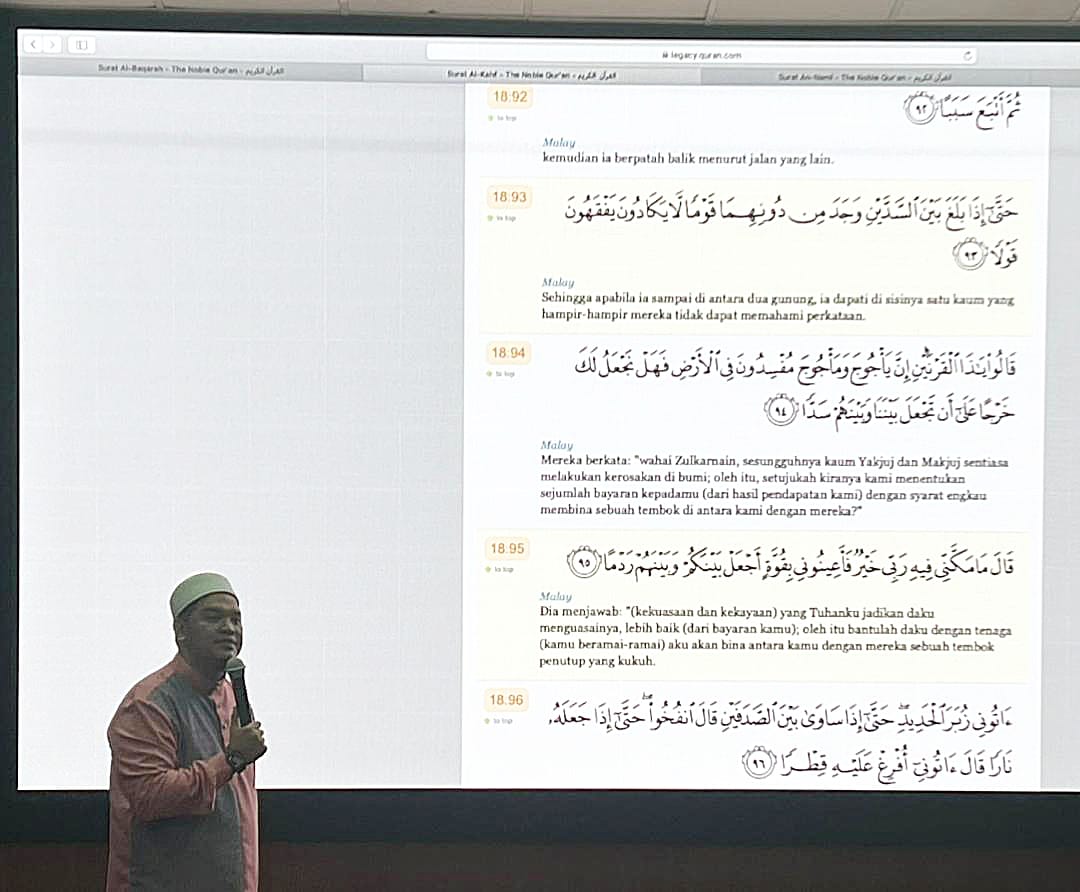 legacy.quran.com
Surat Al-Baqarah - The Noble Qur'an - القرآن الكريم
Surat Al-Kahf - The Noble Qur'an - القرآن الكريم
Surat An-Naml - The Noble Qur'an - القرآن الكريم
18:92
to top
ثُمَّ أَتْبَعَ سَبَبًا ٩٢
Malay
kemudian ia berpatah balik menurut jalan yang lain.
18:93
to top
حَتَّىٰٓ إِذَا بَلَغَ بَيْنَ ٱلسَّدَّيْنِ وَجَدَ مِن دُونِهِمَا قَوْمًا لَّا يَكَادُونَ يَفْقَهُونَ
قَوْلًا ٩٣
Malay
Sehingga apabila ia sampai di antara dua gunung, ia dapati di sisinya satu kaum yang
hampir-hampir mereka tidak dapat memahami perkataan.
18:94
to top
قَالُوا۟ يَٰذَا ٱلْقَرْنَيْنِ إِنَّ يَأْجُوجَ وَمَأْجُوجَ مُفْسِدُونَ فِى ٱلْأَرْضِ فَهَلْ نَجْعَلُ لَكَ
خَرْجًا عَلَىٰٓ أَن تَجْعَلَ بَيْنَنَا وَبَيْنَهُمْ سَدًّا ٩٤
Malay
Mereka berkata: "wahai Zulkarnain, sesungguhnya kaum Yakjuj dan Makjuj sentiasa
melakukan kerosakan di bumi; oleh itu, setujukah kiranya kami menentukan
sejumlah bayaran kepadamu (dari hasil pendapatan kami) dengan syarat engkau
membina sebuah tembok di antara kami dengan mereka?"
18:95
to top
قَالَ مَا مَكَّنِّى فِيهِ رَبِّى خَيْرٌ فَأَعِينُونِى بِقُوَّةٍ أَجْعَلْ بَيْنَكُمْ وَبَيْنَهُمْ رَدْمًا ٩٥
Malay
Dia menjawab: "(kekuasaan dan kekayaan) yang Tuhanku jadikan daku
menguasainya, lebih baik (dari bayaran kamu); oleh itu bantulah daku dengan tenaga
(kamu beramai-ramai) aku akan bina antara kamu dengan mereka sebuah tembok
penutup yang kukuh.
18:96
to top
ءَاتُونِى زُبَرَ ٱلْحَدِيدِ ۖ حَتَّىٰٓ إِذَا سَاوَىٰ بَيْنَ ٱلصَّدَفَيْنِ قَالَ ٱنفُخُوا۟ ۖ حَتَّىٰٓ إِذَا جَعَلَهُۥ
نَارًا قَالَ ءَاتُونِىٓ أُفْرِغْ عَلَيْهِ قِطْرًا ٩٦